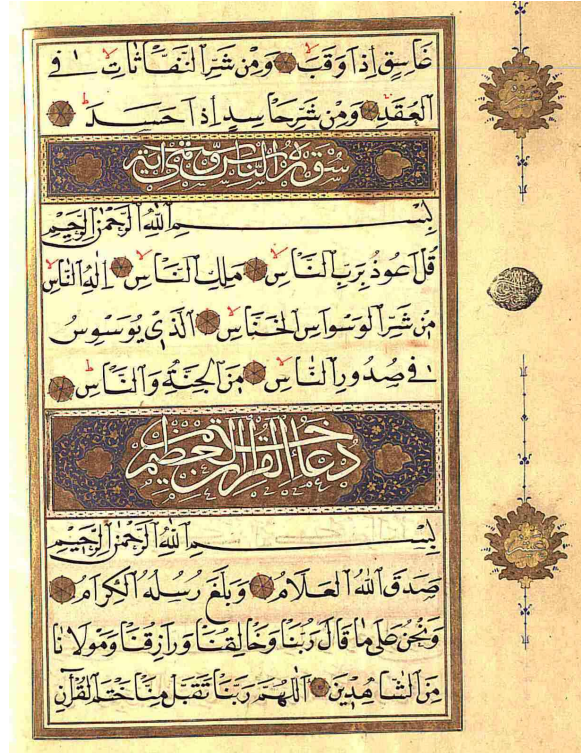 غَاسِقٍ اِذَا وَقَبَ وَمِنْ شَرِّ النَّفَّاثَاتِ فِي
الْعُقَدِ وَمِنْ شَرِّ حَاسِدٍ اِذَا حَسَدَ
سورة الناس وهي ست اية
بِسْمِ اللّٰهِ الرَّحْمٰنِ الرَّحِيمِ
قُلْ اَعُوذُ بِرَبِّ النَّاسِ مَلِكِ النَّاسِ اِلٰهِ النَّاسِ
مِنْ شَرِّ الْوَسْوَاسِ الْخَنَّاسِ الَّذِي يُوَسْوِسُ
فِي صُدُورِ النَّاسِ مِنَ الْجِنَّةِ وَالنَّاسِ
دعاء ختم القرآن العظيم
بِسْمِ اللّٰهِ الرَّحْمٰنِ الرَّحِيمِ
صَدَقَ اللّٰهُ الْعَلَّامُ وَبَلَّغَ رُسُلُهُ الْكِرَامُ
وَنَحْنُ عَلٰى مَا قَالَ رَبُّنَا وَخَالِقُنَا وَرَازِقُنَا وَمَوْلَانَا
مِنَ الشَّاهِدِينَ اَللّٰهُمَّ رَبَّنَا تَقَبَّلْ مِنَّا خَتْمَ الْقُرْآنِ